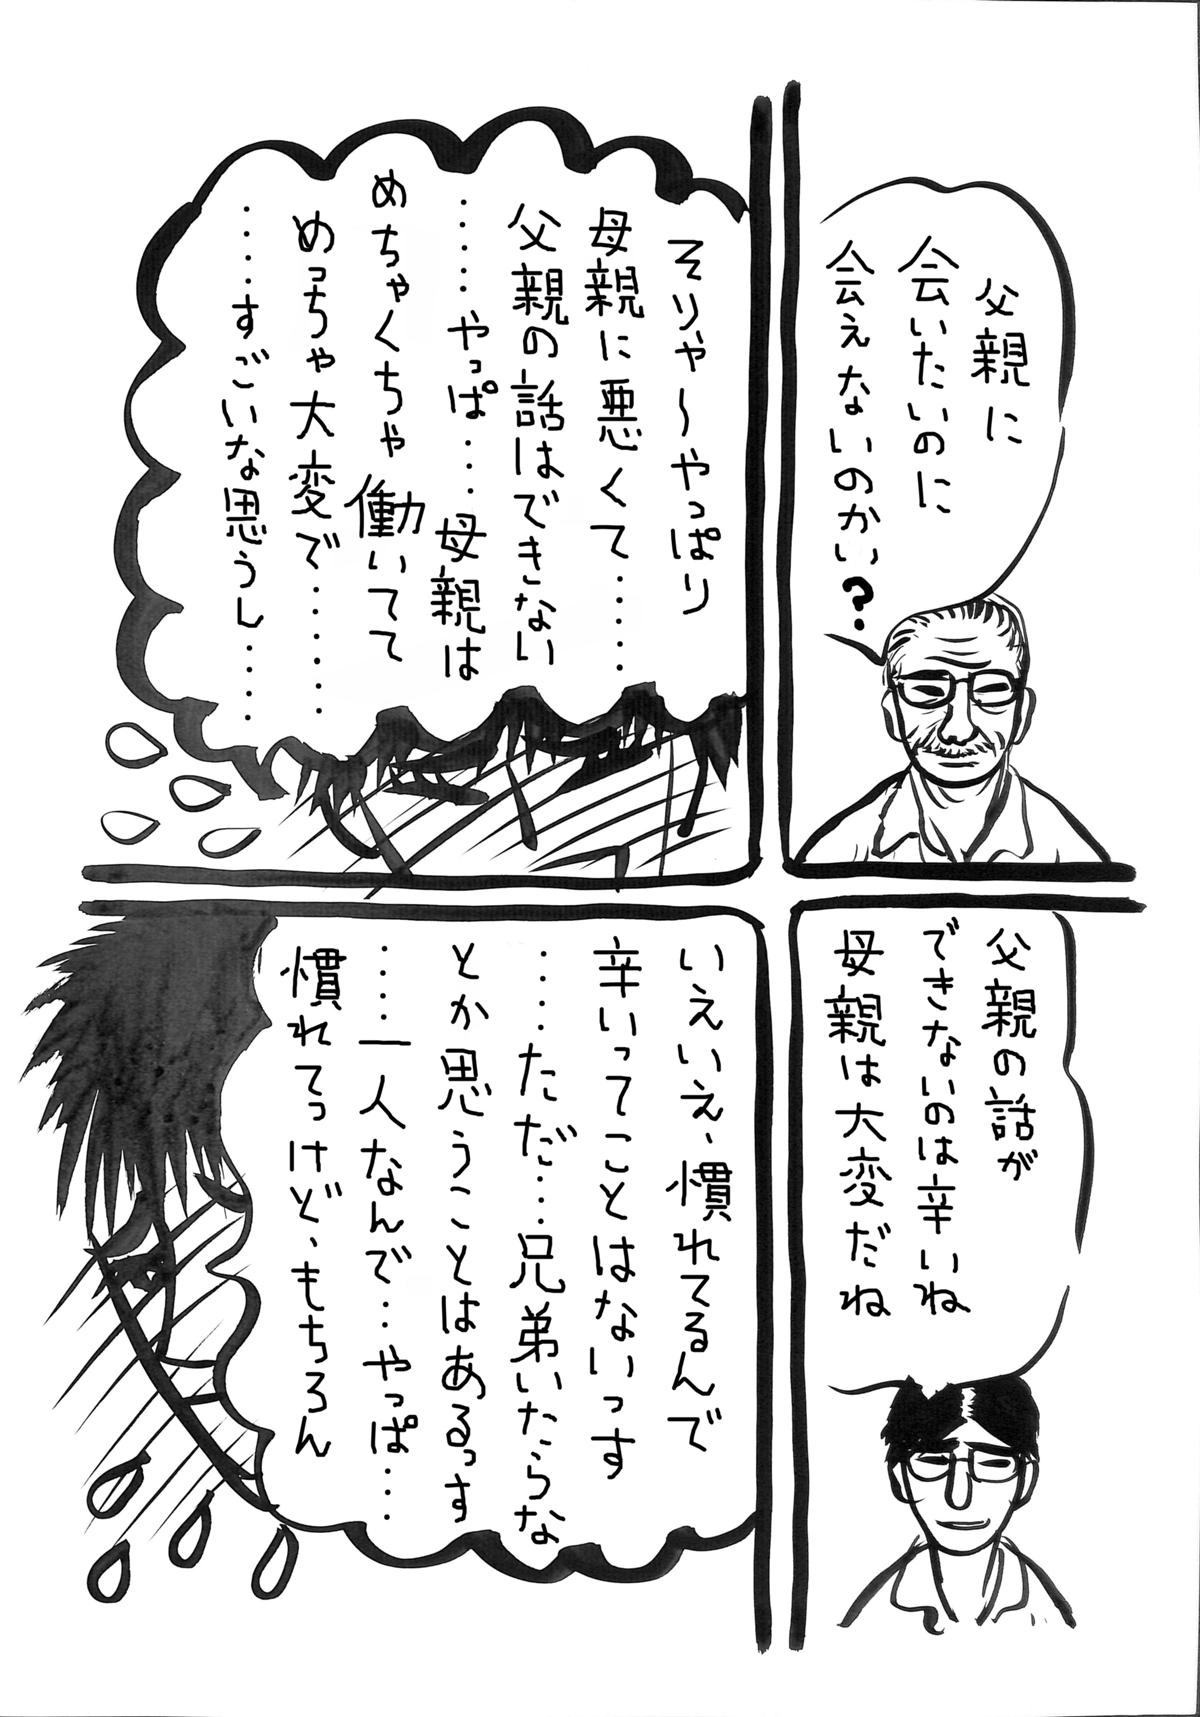 父親に
会いたいのに
会えないのかい?
そりゃ〜やっぱり
母親に悪くて……
父親の話はできない
……やっぱ…母親は
めちゃくちゃ働いてて
めっちゃ大変で……
……すごいな思うし……
父親の話が
できないのは辛いね
母親は大変だね
いえいえ、慣れてるんで
辛いってことはないっす
……ただ…兄弟いたらな
とか思うことはあるっす
……一人なんで…やっぱ…
慣れてっけど、もちろん